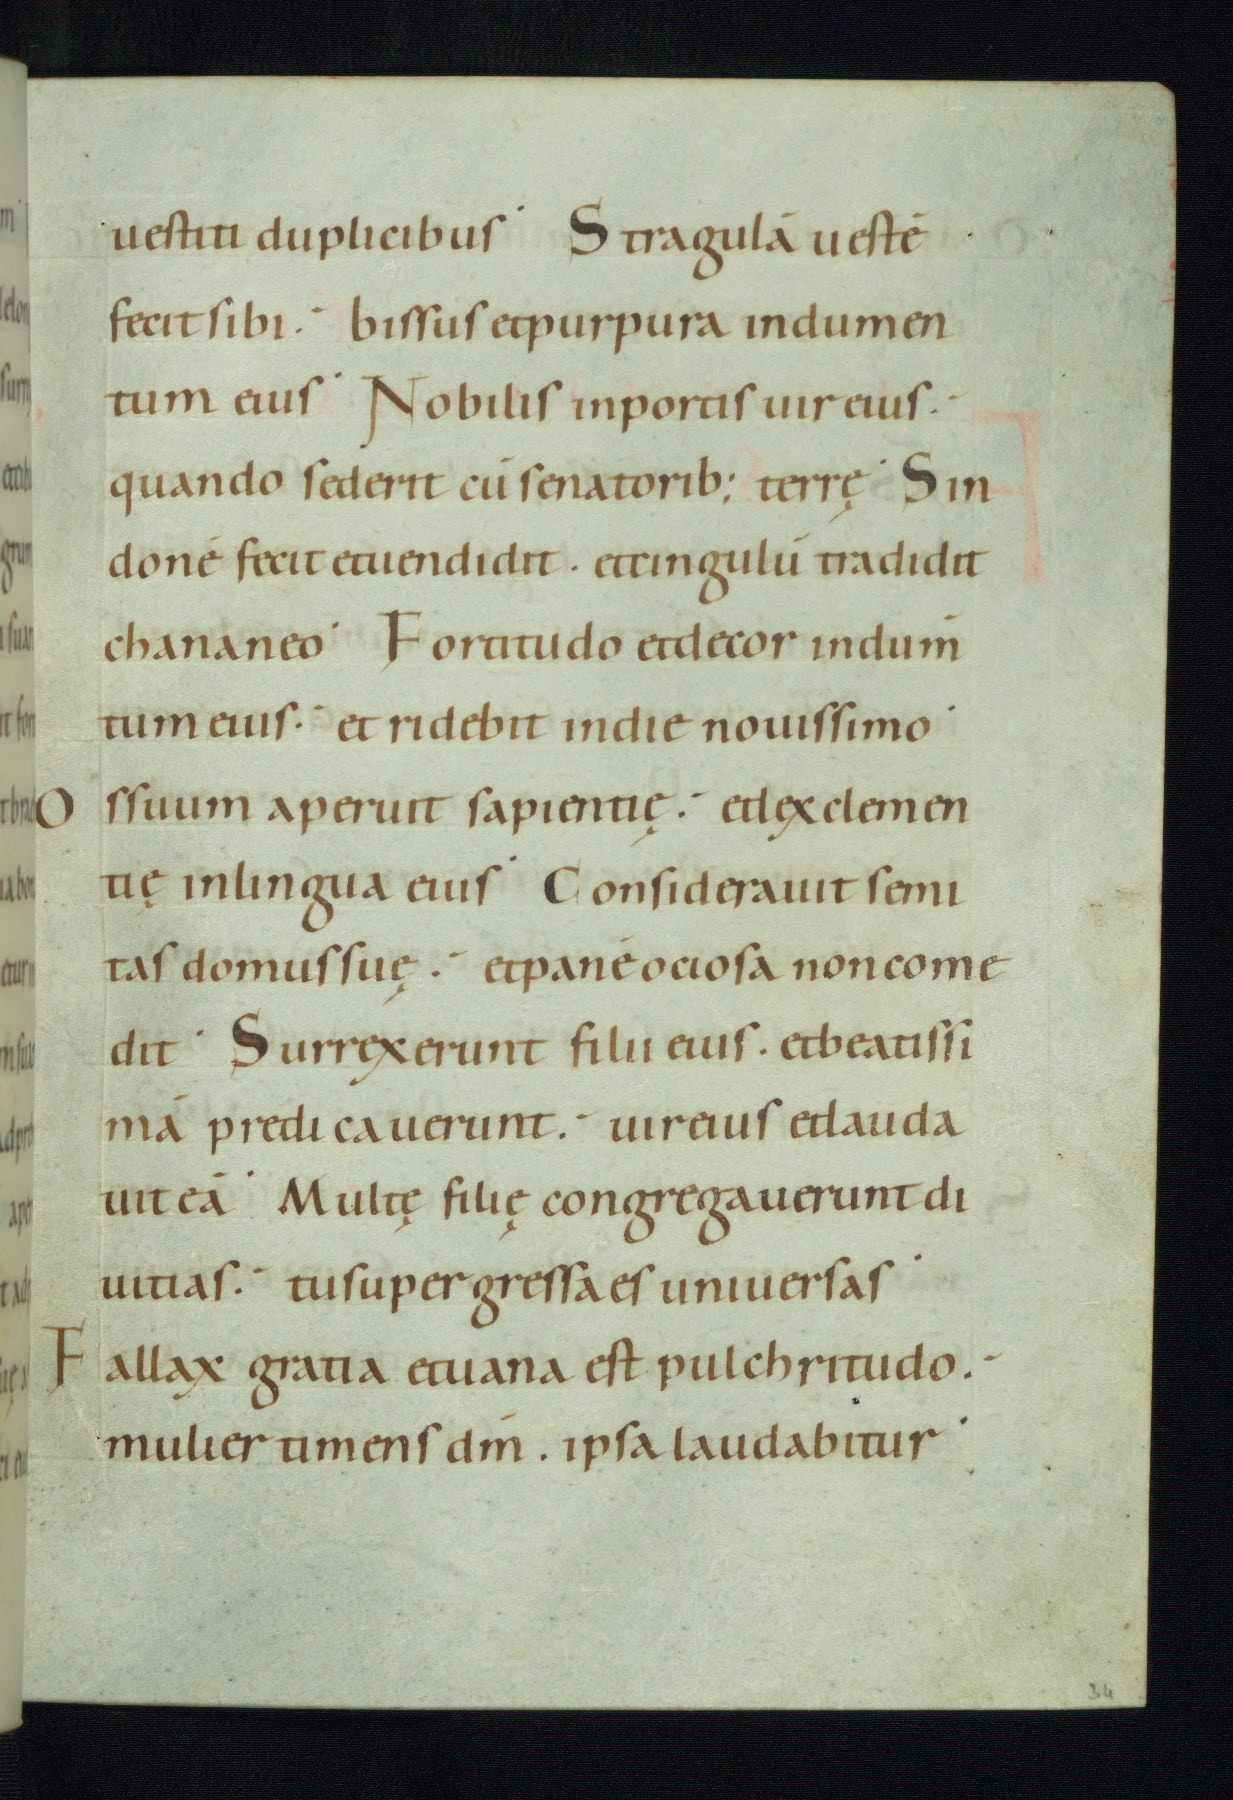 uestiti duplicibus· Stragulā uestē
fecit sibi.- bissus et purpura indumen
tum eius· Nobilis in portis uir eius.-
quando sederit cū senatorib; terrę· Sin
donē fecit et uendidit . et cingulū tradidit
chananeo· Fortitudo et decor indum̄
tum eius.- et ridebit in die nouissimo·
O ssuum aperuit sapientię.- et lex clemen
tię in lingua eius· Considerauit semi
tas domus suę.- et panē ociosa non come
dit· Surrexerunt filii eius . et beatissi
mā predicauerunt.- uir eius et lauda
uit eā· Multę filię congregauerunt di
uitias.- tu supergressa es uniuersas·
Fallax gratia et uana est pulchritudo.-
mulier timens dm̄ . ipsa laudabitur·
34